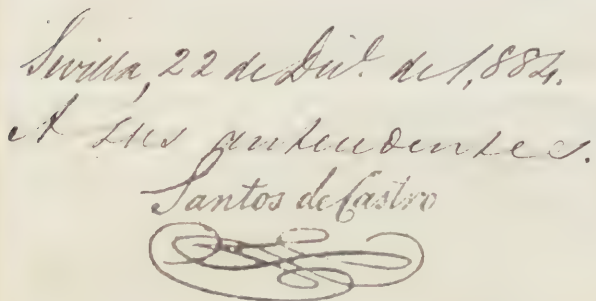 Sevilla, 22 de Dic.e de 1,884.
A sus antecedentes.
Santos de Castro